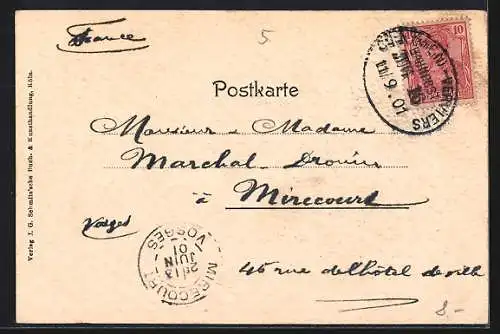 France
5
10
VERVIERS
11/6.01
Postkarte
Monsieur & Madame
Marchal-Drouin
à Mirecourt
Vosges
MIRECOURT
13
JUIN
01
VOSGES
46 rue de l'hôtel de ville
8-
Verlag J. G. Schmitz'sche Buch- & Kunsthandlung, Köln.